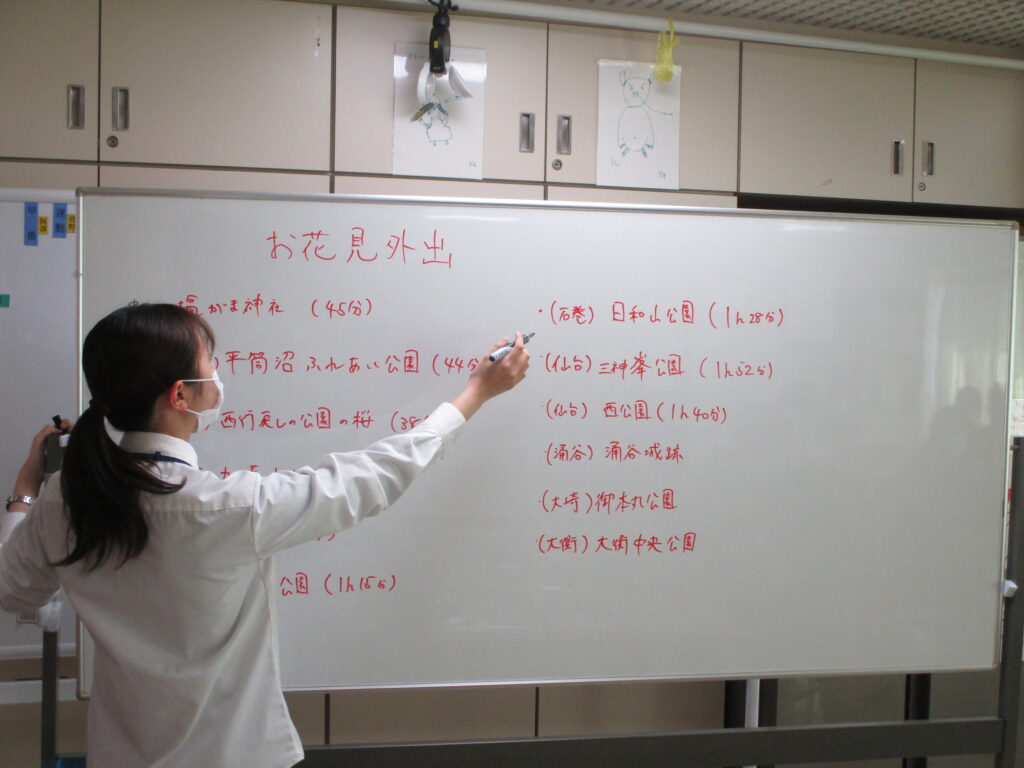 お花見外出
塩がま神社 (45分)
平筒沼ふれあい公園 (44分
西行戻しの公園の桜 (38
公園 (1h15分)
・(石巻) 日和山公園 (1h28分)
・(仙台) 三神峯公園 (1h52分)
・(仙台) 西公園 (1h40分)
・(涌谷) 涌谷城跡
・(大崎) 御本丸公園
・(大衡) 大衡中央公園
早番
遅勤